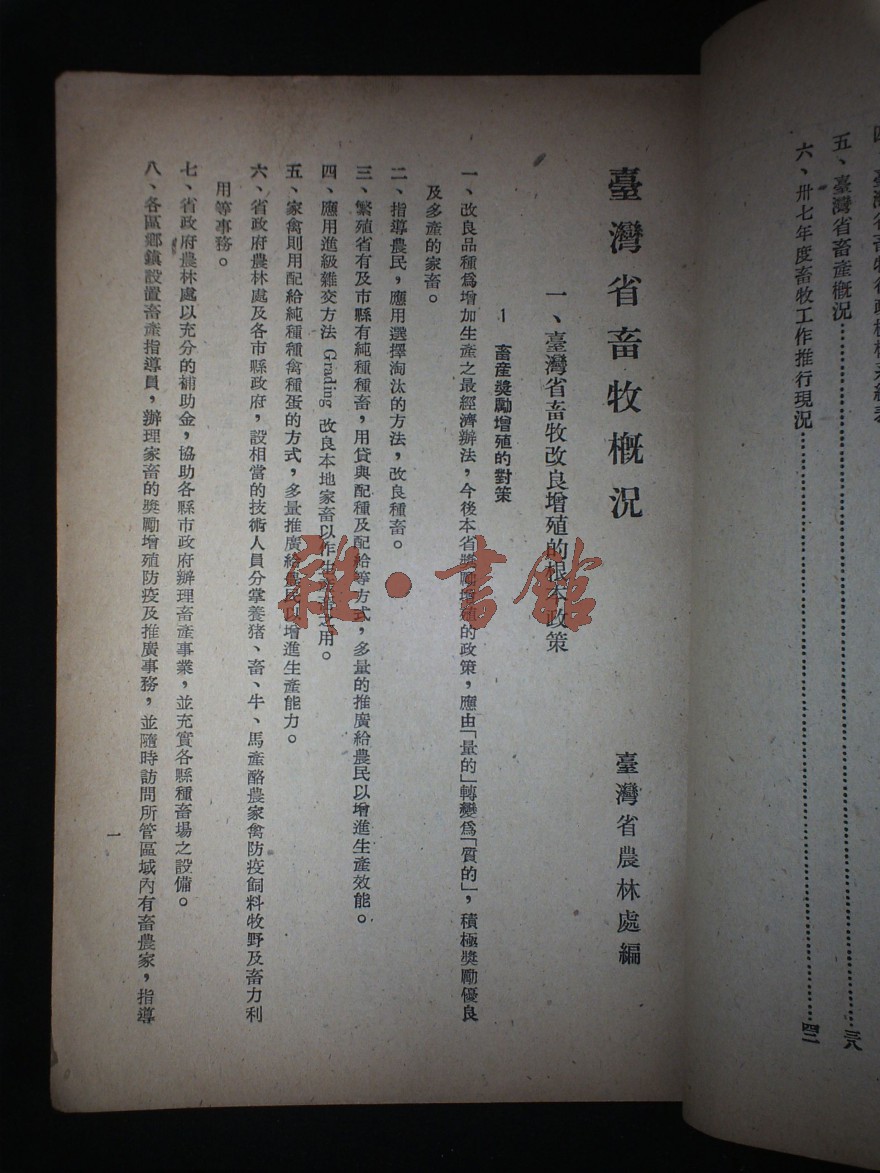 四、臺灣省畜牧行政機構系統表
五、臺灣省畜產概況……三八
六、卅七年度畜牧工作推行現況……四二
臺灣省畜牧概況
臺灣省農林處編
一、臺灣省畜牧改良增殖的根本政策
1 畜產獎勵增殖的對策
一、改良品種爲增加生產之最經濟辦法，今後本省獎勵增殖的政策，應由「量的」轉變爲「質的」，積極獎勵優良
及多產的家畜。
二、指導農民，應用選擇淘汰的方法，改良種畜。
三、繁殖省有及市縣有純種種畜，用貸與配種及配給等方式，多量的推廣給農民以增進生產效能。
四、應用進級雜交方法 Grading 改良本地家畜以作生產之用。
五、家禽則用配給純種種禽種蛋的方式，多量推廣給農民以增進生產能力。
六、省政府農林處及各市縣政府，設相當的技術人員分掌養猪、畜、牛、馬產酪農家禽防疫飼料牧野及畜力利
用等事務。
七、省政府農林處以充分的補助金，協助各縣市政府辦理畜產事業，並充實各縣種畜場之設備。
八、各區鄉鎮設置畜產指導員，辦理家畜的獎勵增殖防疫及推廣事務，並隨時訪問所管區域內有畜農家，指導
一
雜·書館